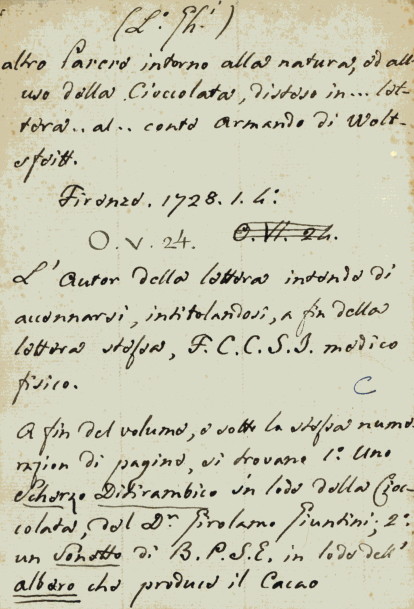 (L.° Gh.')
altro Parere intorno alla natura, ed all'
uso della Cioccolata, disteso in... let-
tera.. al.. conte Armando di Wolt-
sfeitt.
Firenze. 1728. 1. 4:°
O. V. 24. O. VI. 24.
L' Autor della lettera intende di
accennarsi, intitolandosi, a fin della
lettera stessa, F. C. C. S. I. medico
fisico.
C
A fin del volume, e sotto la stessa nume-
razion di pagine, si trovano 1.° Uno
Scherzo Ditirambico in lode della Cioc-
colata, del D.r Girolamo Giuntini; 2.°
un Sonetto di B. P. S. E. in lode dell'
albero che produce il Cacao